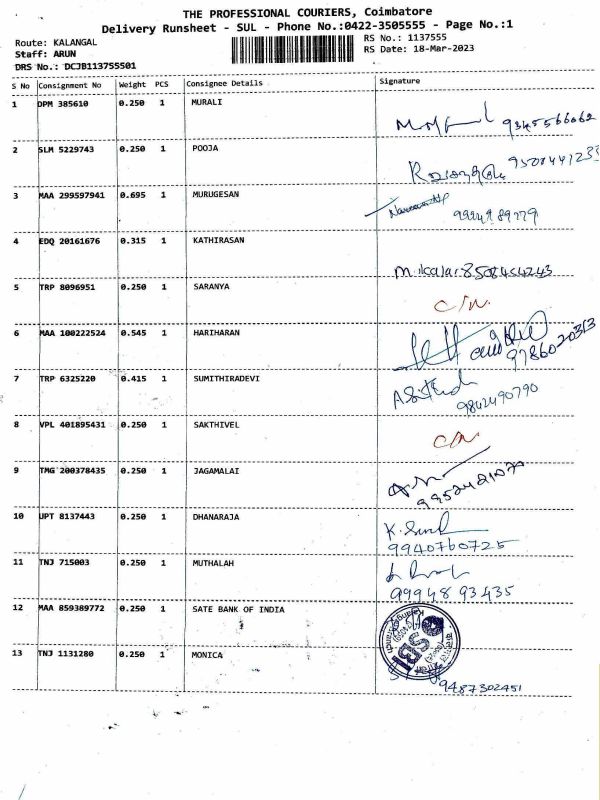 THE PROFESSIONAL COURIERS, Coimbatore
Delivery Runsheet - SUL - Phone No.:0422-3505555 - Page No.:1
Route: KALANGAL
RS No.: 1137555
Staff: ARUN
RS Date: 18-Mar-2023
DRS No.: DCJB113755501
S No Consignment No Weight PCS Consignee Details Signature
1 DPM 385610 0.250 1 MURALI
9345566062
2 SLM 5229743 0.250 1 POOJA
3 MAA 299597941 0.695 1 MURUGESAN
4 EDQ 20161676 0.315 1 KATHIRASAN
8508454243
5 TRP 8096951 0.250 1 SARANYA
C/N.
6 MAA 100222524 0.545 1 HARIHARAN
9786020313
7 TRP 6325220 0.415 1 SUMITHIRADEVI
9842490790
8 VPL 401895431 0.250 1 SAKTHIVEL
C/N
9 TMG 200378435 0.250 1 JAGAMALAI
10 UPT 8137443 0.250 1 DHANARAJA
9940760725
11 TNJ 715003 0.250 1 MUTHALAH
9994893435
12 MAA 859389772 0.250 1 SATE BANK OF INDIA
SBI
13 TNJ 1131280 0.250 1 MONICA
9487302451